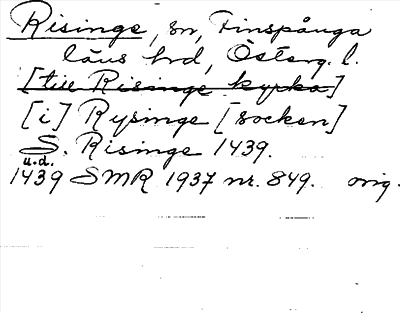 Risinge, sn, Finspånga
läns hrd, Österg. l.
[till Risinge kyrka]
[i] Rysinge [socken]
S. Risinge 1439.
u.d.
1439 SMR 1937 nr. 849. orig.